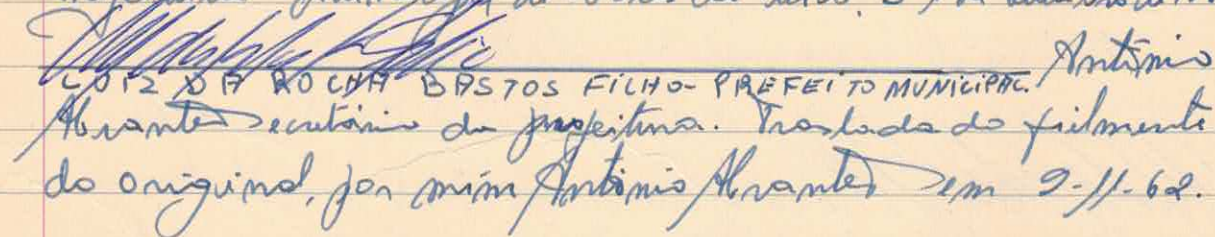 LUIZ DA ROCHA BASTOS FILHO - PREFEITO MUNICIPAL. Antônio
Abrantes Secretário da prefeitura. Trasladado fielmente
do original, por mim Antônio Abrantes em 9-11-62.